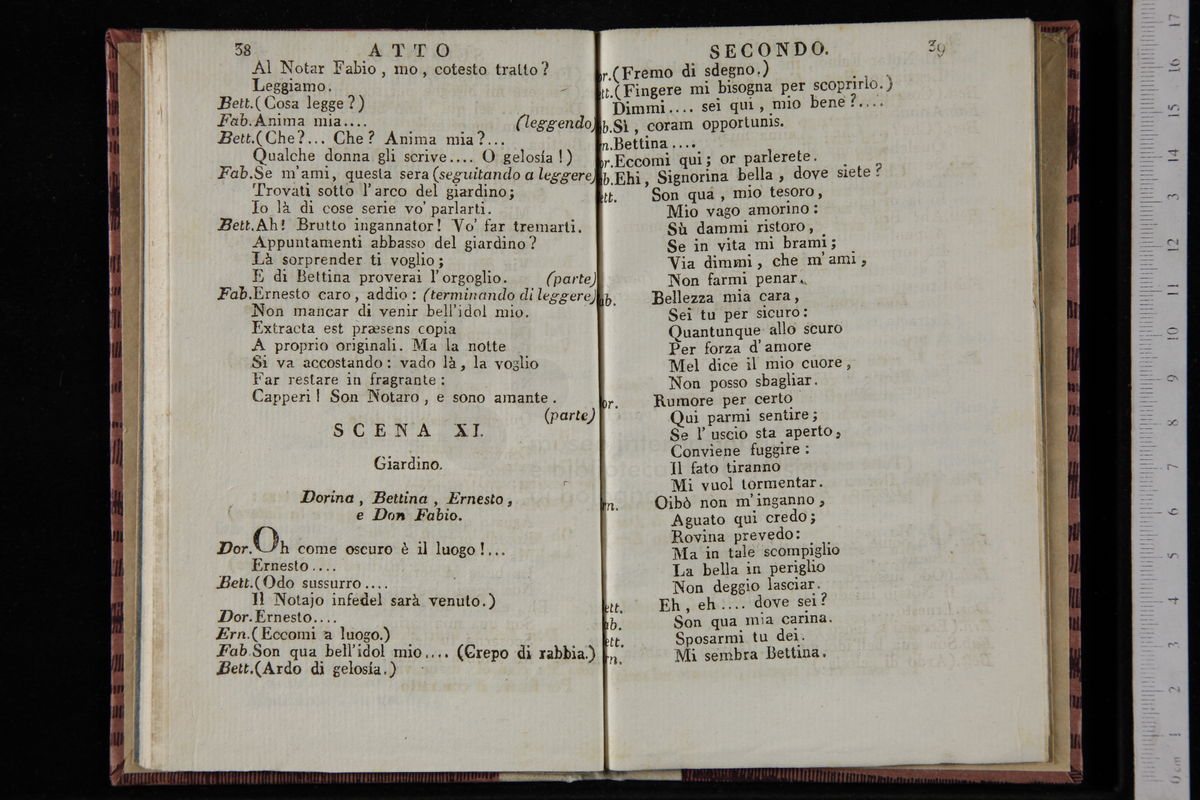 38 ATTO
Al Notar Fabio , mo , cotesto tratto ?
Leggiamo.
Bett.(Cosa legge ?)
Fab.Anima mia.... (leggendo)
Bett.(Che ?... Che ? Anima mia ?...
Qualche donna gli scrive.... O gelosía !)
Fab.Se m'ami, questa sera (seguitando a leggere)
Trovati sotto l'arco del giardino;
Io là di cose serie vo' parlarti.
Bett.Ah! Brutto ingannator! Vo' far tremarti.
Appuntamenti abbasso del giardino ?
Là sorprender ti voglio;
E di Bettina proverai l'orgoglio. (parte)
Fab.Ernesto caro , addio : (terminando di leggere)
Non mancar di venir bell'idol mio.
Extracta est præsens copia
A proprio originali. Ma la notte
Si va accostando : vado là , la voglio
Far restare in fragrante :
Capperi ! Son Notaro , e sono amante .
(parte)
SCENA XI.
Giardino.
Dorina , Bettina , Ernesto ,
e Don Fabio.
Dor.Oh come oscuro è il luogo !...
Ernesto ....
Bett.(Odo sussurro ....
Il Notajo infedel sarà venuto.)
Dor.Ernesto....
Ern.(Eccomi a luogo.)
Fab.Son qua bell'idol mio.... (Crepo di rabbia.)
Bett.(Ardo di gelosía.)
SECONDO. 39
or.(Fremo di sdegno.)
tt.(Fingere mi bisogna per scoprirlo.)
Dimmi.... sei qui , mio bene ?....
b.Sì , coram opportunis.
n.Bettina ....
or.Eccomi qui ; or parlerete.
ab.Ehi, Signorina bella , dove siete ?
ett. Son qua , mio tesoro ,
Mio vago amorino :
Sù dammi ristoro ,
Se in vita mi brami ;
Via dimmi , che m'ami ,
Non farmi penar.
ab. Bellezza mia cara ,
Sei tu per sicuro :
Quantunque allo scuro
Per forza d'amore
Mel dice il mio cuore ,
Non posso sbagliar.
or. Rumore per certo
Qui parmi sentire ;
Se l'uscio sta aperto ,
Conviene fuggire :
Il fato tiranno
Mi vuol tormentar.
rn. Oibò non m'inganno ,
Aguato qui credo ;
Rovina prevedo :
Ma in tale scompiglio
La bella in periglio
Non deggio lasciar.
ett. Eh , eh .... dove sei ?
ab. Son qua mia carina.
ett. Sposarmi tu dei.
rn. Mi sembra Bettina.